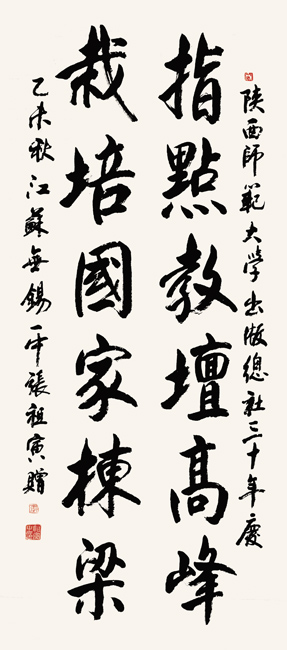 陕西師範大學出版總社三十年慶
指點教壇高峰
栽培國家棟梁
乙未秋江蘇無錫一中張祖寅贈